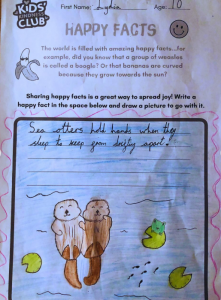 KiDS'
KINDNESS
CLUB
First Name:
Age: 10
HAPPY FACTS
The world is filled with amazing happy facts...for
example, did you know that a group of weasles
is called a boogle? Or that bananas are curved
because they grow towards the sun?
Sharing happy facts is a great way to spread joy! Write a
happy fact in the space below and draw a picture to go with it.
Sea otters hold hands when they
sleep to keep from drifting apart!